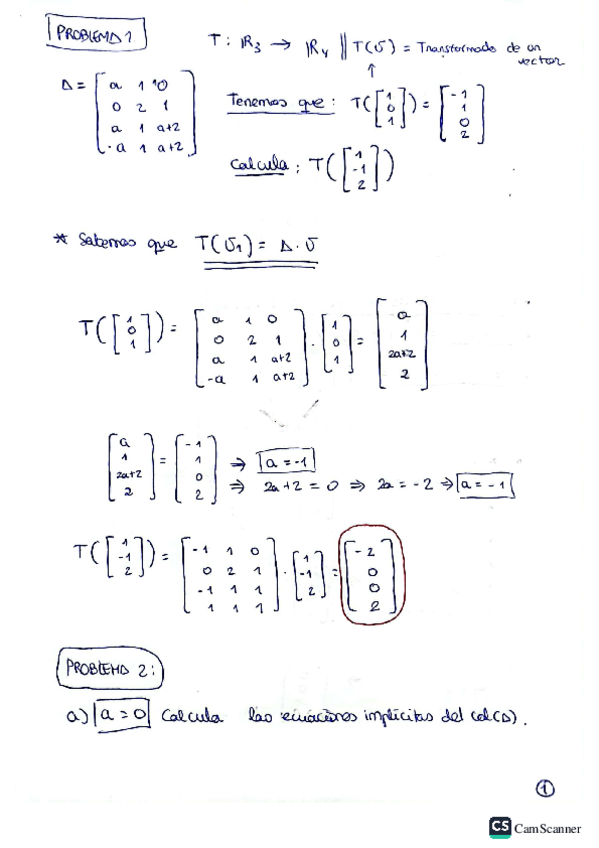 PROBLEMA 1
T: ℝ3 → ℝ4 || T(v) = Transformado de un vector
A = [a 1 0; 0 2 1; a 1 a+2; -a 1 a+2]
Tenemos que: T([1; 0; 1]) = [-1; 1; 0; 2]
Calcula: T([1; -1; 2])
* Sabemos que T(v1) = A · v
T([1; 0; 1]) = [a 1 0; 0 2 1; a 1 a+2; -a 1 a+2] · [1; 0; 1] = [a; 1; 2a+2; 2]
[a; 1; 2a+2; 2] = [-1; 1; 0; 2] ⇒ a = -1
⇒ 2a+2 = 0 ⇒ 2a = -2 ⇒ a = -1
T([1; -1; 2]) = [-1 1 0; 0 2 1; -1 1 1; 1 1 1] · [1; -1; 2] = [-2; 0; 0; 2]
PROBLEMA 2:
a) a = 0 Calcula las ecuaciones implícitas del col(A).
1
CS CamScanner